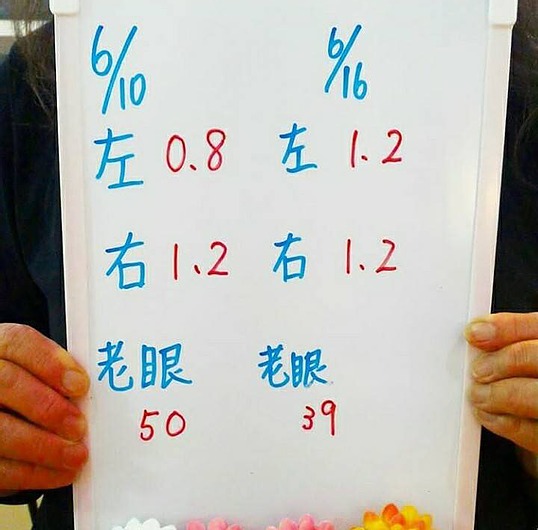 6/10 6/16
左 0.8 左 1.2
右 1.2 右 1.2
老眼 老眼
50 39